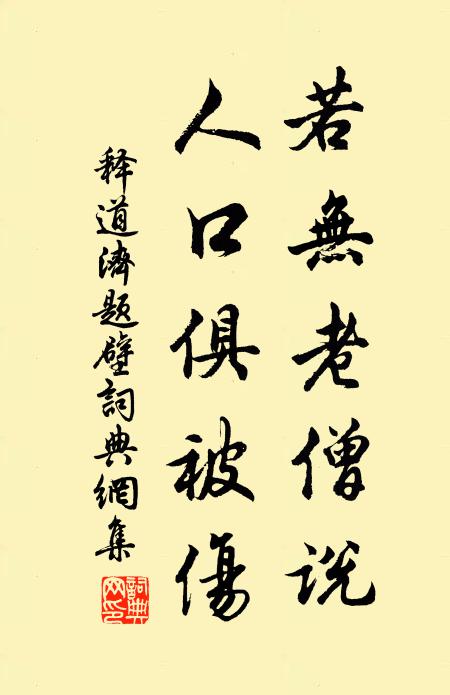 若無老僧说
人口俱被傷
释道濟题壁詞典網集
詞典网印